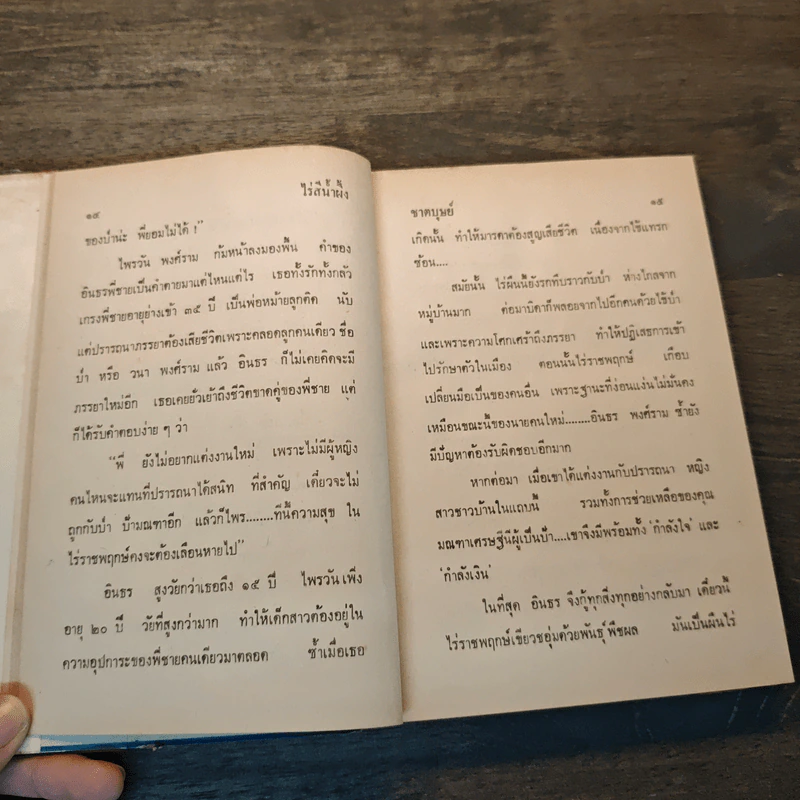 ๑๔
ไร่สีน้ำผึ้ง
ของป๋าน่ะ พี่ยอมไม่ได้ !”
ไพรวัน พงศ์ราม ก้มหน้าลงมองพื้น คำของ
อินธรพี่ชายเป็นคำตายมาแต่ไหนแต่ไร เธอทั้งรักทั้งกลัว
เกรงพี่ชายอายุย่างเข้า ๓๕ ปี เป็นพ่อหม้ายลูกติด นับ
แต่ปรารถนาภรรยาต้องเสียชีวิตเพราะคลอดลูกคนเดียว ชื่อ
ป๋า หรือ วนา พงศ์ราม แล้ว อินธร ก็ไม่เคยคิดจะมี
ภรรยาใหม่อีก เธอเคยยั่วเย้าถึงชีวิตขาดคู่ของพี่ชาย แต่
ก็ได้รับคำตอบง่าย ๆ ว่า
“พี่ ยังไม่อยากแต่งงานใหม่ เพราะไม่มีผู้หญิง
คนไหนจะแทนที่ปรารถนาได้สนิท ที่สำคัญ เดี๋ยวจะไม่
ถูกกับป๋า ป้ามณฑาอีก แล้วก็ไพร........ทีนี้ความสุข ใน
ไร่ราชพฤกษ์คงจะต้องเลือนหายไป”
อินธร สูงวัยกว่าเธอถึง ๑๕ ปี ไพรวันเพิ่ง
อายุ ๒๐ ปี วัยที่สูงกว่ามาก ทำให้เด็กสาวต้องอยู่ใน
ความอุปการะของพี่ชายคนเดียวมาตลอด ซ้ำเมื่อเธอ
ชาตบุษย์
๑๕
เกิดนั้น ทำให้มารดาต้องสูญเสียชีวิต เนื่องจากไข้แทรก
ซ้อน....
สมัยนั้น ไร่ผืนนี้ยังรกทึบราวกับป่า ห่างไกลจาก
หมู่บ้านมาก ต่อมาบิดาก็พลอยจากไปอีกคนด้วยไข้ป่า
และเพราะความโศกเศร้าถึงภรรยา ทำให้ปฏิเสธการเข้า
ไปรักษาตัวในเมือง ตอนนั้นไร่ราชพฤกษ์ เกือบ
เปลี่ยนมือเป็นของคนอื่น เพราะฐานะที่ง่อนแง่นไม่มั่นคง
เหมือนขณะนี้ของนายคนใหม่........อินธร พงศ์ราม ซ้ำยัง
มีปัญหาต้องรับผิดชอบอีกมาก
หากต่อมา เมื่อเขาได้แต่งงานกับปรารถนา หญิง
สาวชาวบ้านในแถบนี้ รวมทั้งการช่วยเหลือของคุณ
มณฑาเศรษฐินีผู้เป็นป้า....เขาจึงมีพร้อมทั้ง ‘กำลังใจ’ และ
‘กำลังเงิน’
ในที่สุด อินธร จึงกู้ทุกสิ่งทุกอย่างกลับมา เดี๋ยวนี้
ไร่ราชพฤกษ์เขียวชอุ่มด้วยพันธุ์พืชผล มันเป็นผืนไร่